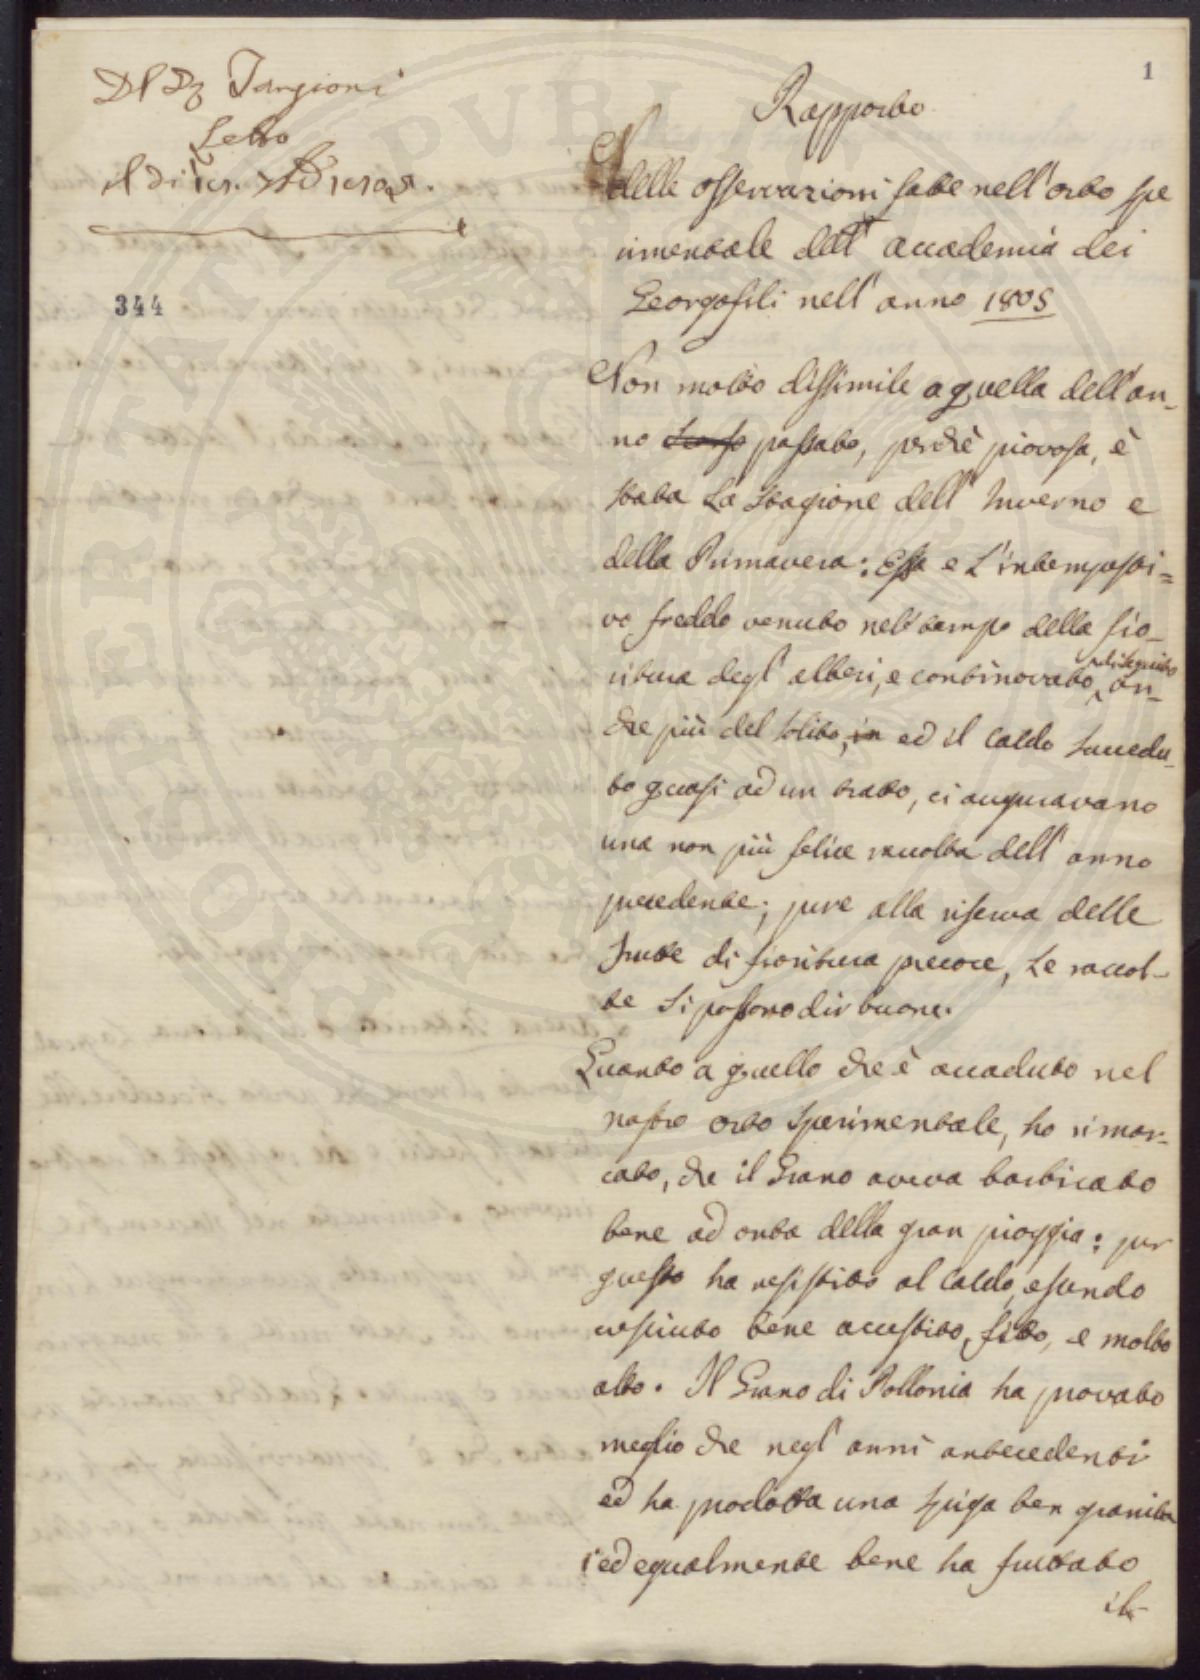 Targioni
Letto
il di
344
1
Rapporto
delle osservazioni fatte nell'orto spe
rimentale dell' accademia dei
Georgofili nell' anno 1805
Non molto dissimile a quella dell'an-
no scorso passato, perchè piovosa, è
stata la stagione dell' Inverno e
della Primavera: Essa e l'intempesti=
vo freddo venuto nel tempo della fio-
ritura degl' alberi, e continovato di seguito an-
che più del solito, in ed il caldo succedu-
to quasi ad un tratto, ci auguravano
una non più felice raccolta dell' anno
precedente; pure alla riserva delle
frutte di fioritura precoce, le raccol-
te si possono dir buone.
Quanto a quello che è accaduto nel
nostro orto sperimentale, ho rimar-
cato, che il Grano aveva barbicato
bene ad onta della gran pioggia: per
questo ha resistito al caldo, essendo
cresciuto bene accestito, fitto, e molto
alto. Il Grano di Pollonia ha provato
meglio che negl' anni antecedenti
ed ha prodotta una spiga ben granita
ed egualmente bene ha fruttato
il